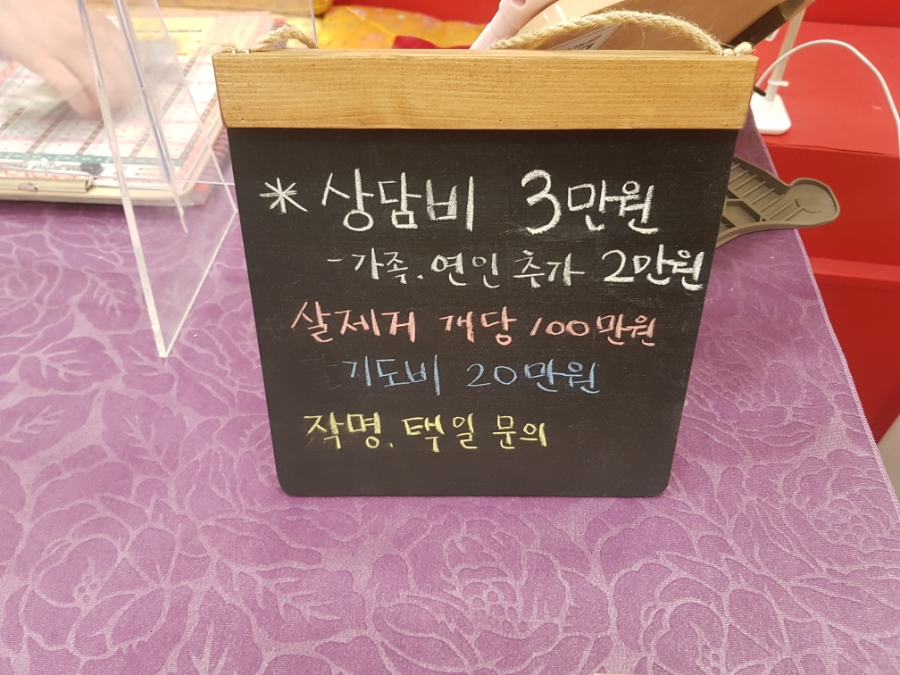 * 상담비 3만원
- 가족.연인 추가 2만원
살제거 개당 100만원
기도비 20만원
작명. 택일 문의